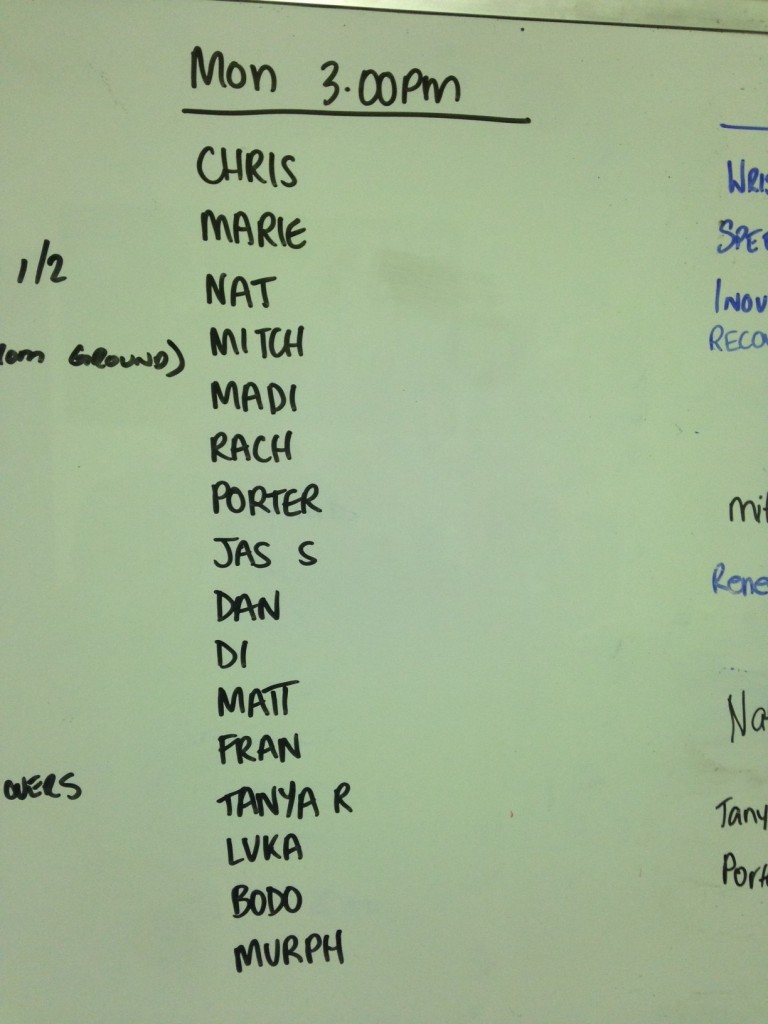 Mon 3.00pm
CHRIS
MARIE
NAT
MITCH
MADI
RACH
PORTER
JAS S
DAN
DI
MATT
FRAN
TANYA R
LUKA
BODO
MURPH
1/2
GROUND)
OVERS
WRIS
SPEE
INOV
RECO
mit
Rene
Na
Tany
Port